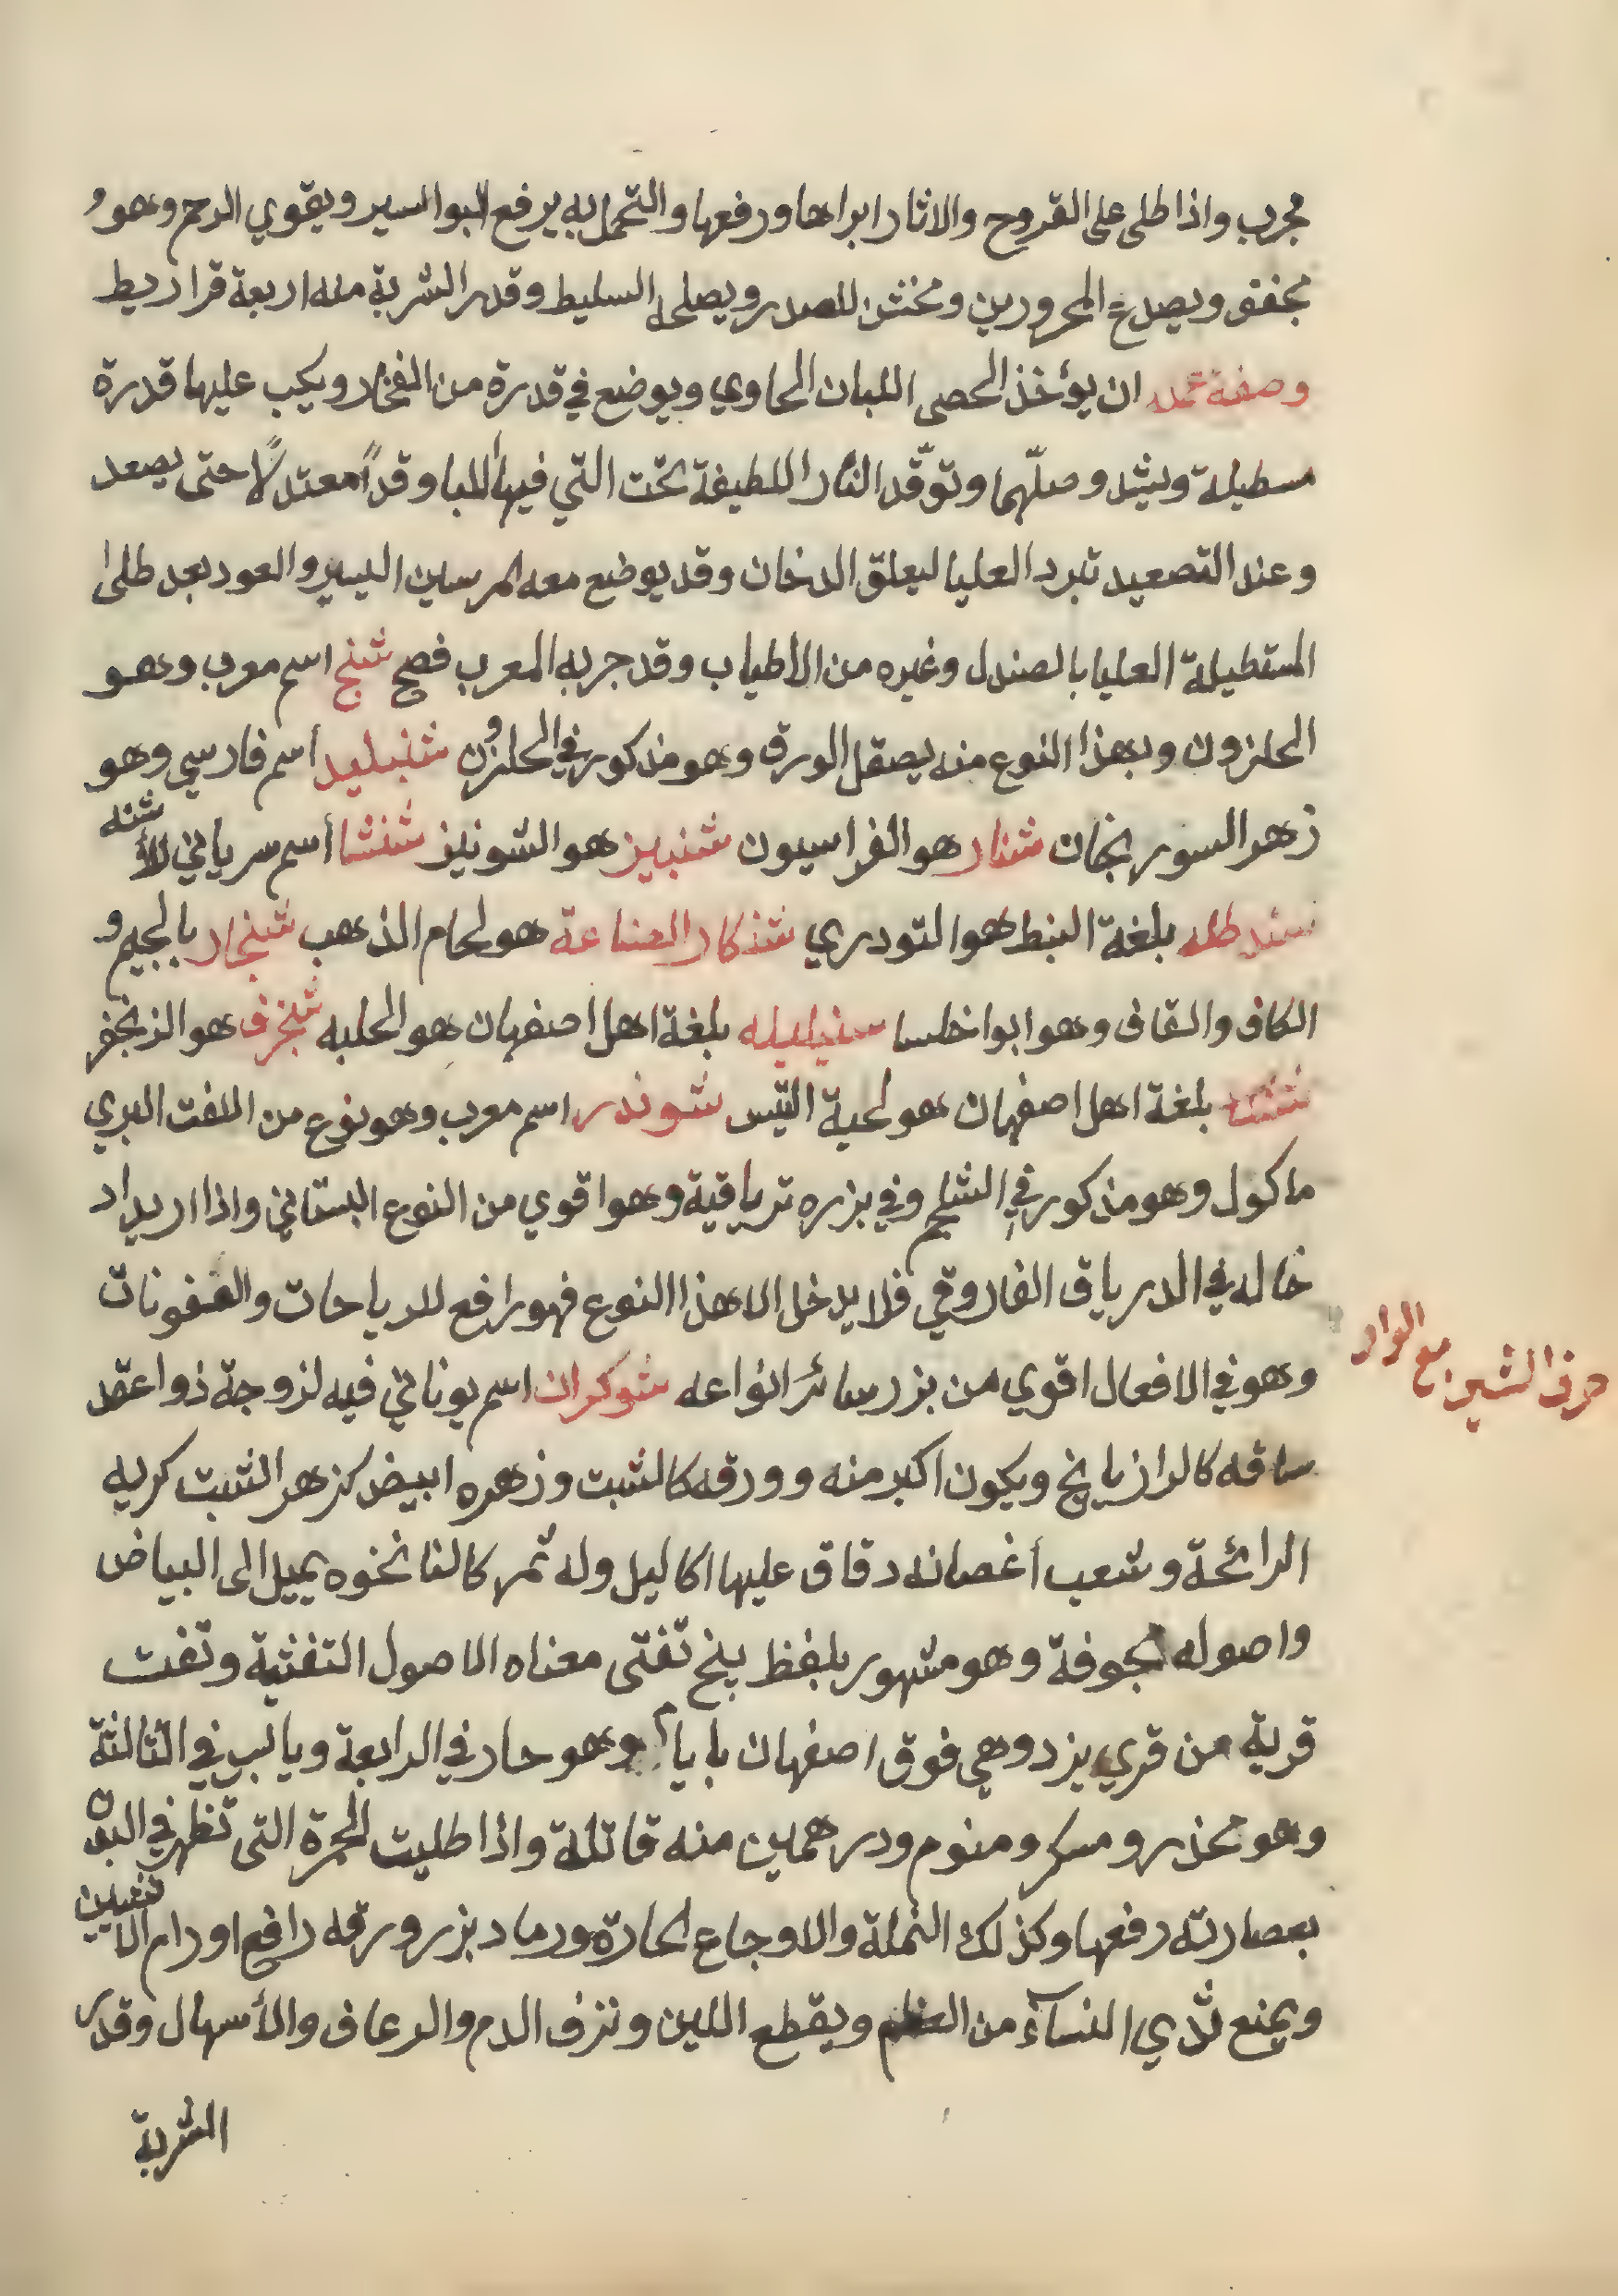 مجرب واذا طلى على القروح والاثار ابراها ورفعها والتحمل به يرفع البواسير ويقوي الرحم وهو
مجفف ويصدع المحرورين ومخشن للصدر ويصلحه السليط وقدر الشربة منه اربعة قراريط
وصفة عمله ان يؤخذ الحصى اللبان الجاوي ويوضع في قدرة من الفخار ويكب عليها قدرة
مسطيلة ويشد وصلّهما وتوقّد النار اللطيفة تحت التي فيها اللبا وقداً معتدلاً حتى يصعد
وعند التصعيد تبرد العليا ليعلق الدخان وقد يوضع معه المرسين اليسير والعود بعد طلى
المستطيلة العليا بالصندل وغيره من الاطياب وقد جربه المعرب فصح شنج اسم معرب وهو
الحلزون وبهذا النوع منه يصقل الورق وهو مذكور في الحلزون شنبليد اسم فارسي وهو
زهر السورنجان شنار هو الفراسيون شنبيز هو الشونيز شنشا أسم سرياني للأشنه
بلغة النبط هو التودري شنكار الصناعة هو لحام الذهب شنجار بالجيم و
الكاف والقاف وهو ابوا خلسا سنبليله بلغة اهل اصفهان هو الحلبه شنجرف هو الزنجفر
بلغة اهل اصفهان هو لحية التيس شوندر اسم معرب وهو نوع من اللفت البري
ماكول وهو مذكور في الشلجم وفي بزره ترياقية وهو اقوي من النوع البستاني واذا اريد اد
خاله في الدرياق الفاروقي فلا يدخل الا هذا النوع فهو رافع للرياحات والعفونات
وهو في الافعال اقوي من بزر سائر انواعه شوكران اسم يوناني فيه لزوجة ذوا عقد
حرف الشين مع الواو
ساقه كالرازيانج ويكون اكبر منه وورقه كالشبت وزهره ابيض كزهر الشبت كريه
الرائحة وشعب أغصانه دقاق عليها اكاليل وله ثمر كالنانخوه يميل الى البياض
واصوله مجوفة وهو مشهور بلفظ بيخ تفتى معناه الاصول التفثية وتفت
قرية من قري يزد وهي فوق اصفهان وهو حار في الرابعة ويابس في الثالثة
وهو مخدر ومسكر ومنوم ودرهمين منه قاتلة واذا طليت الحمرة التى تظهر في البدن
بعصارته رفعها وكذلك النملة والاوجاع الحارة ورماد بزر ورقه رافع اورام الانثيين
ويمنع ثدي النسآء من العظم ويقطع اللبن ونزف الدم والرعاف والأسهال وقدر
الشربة